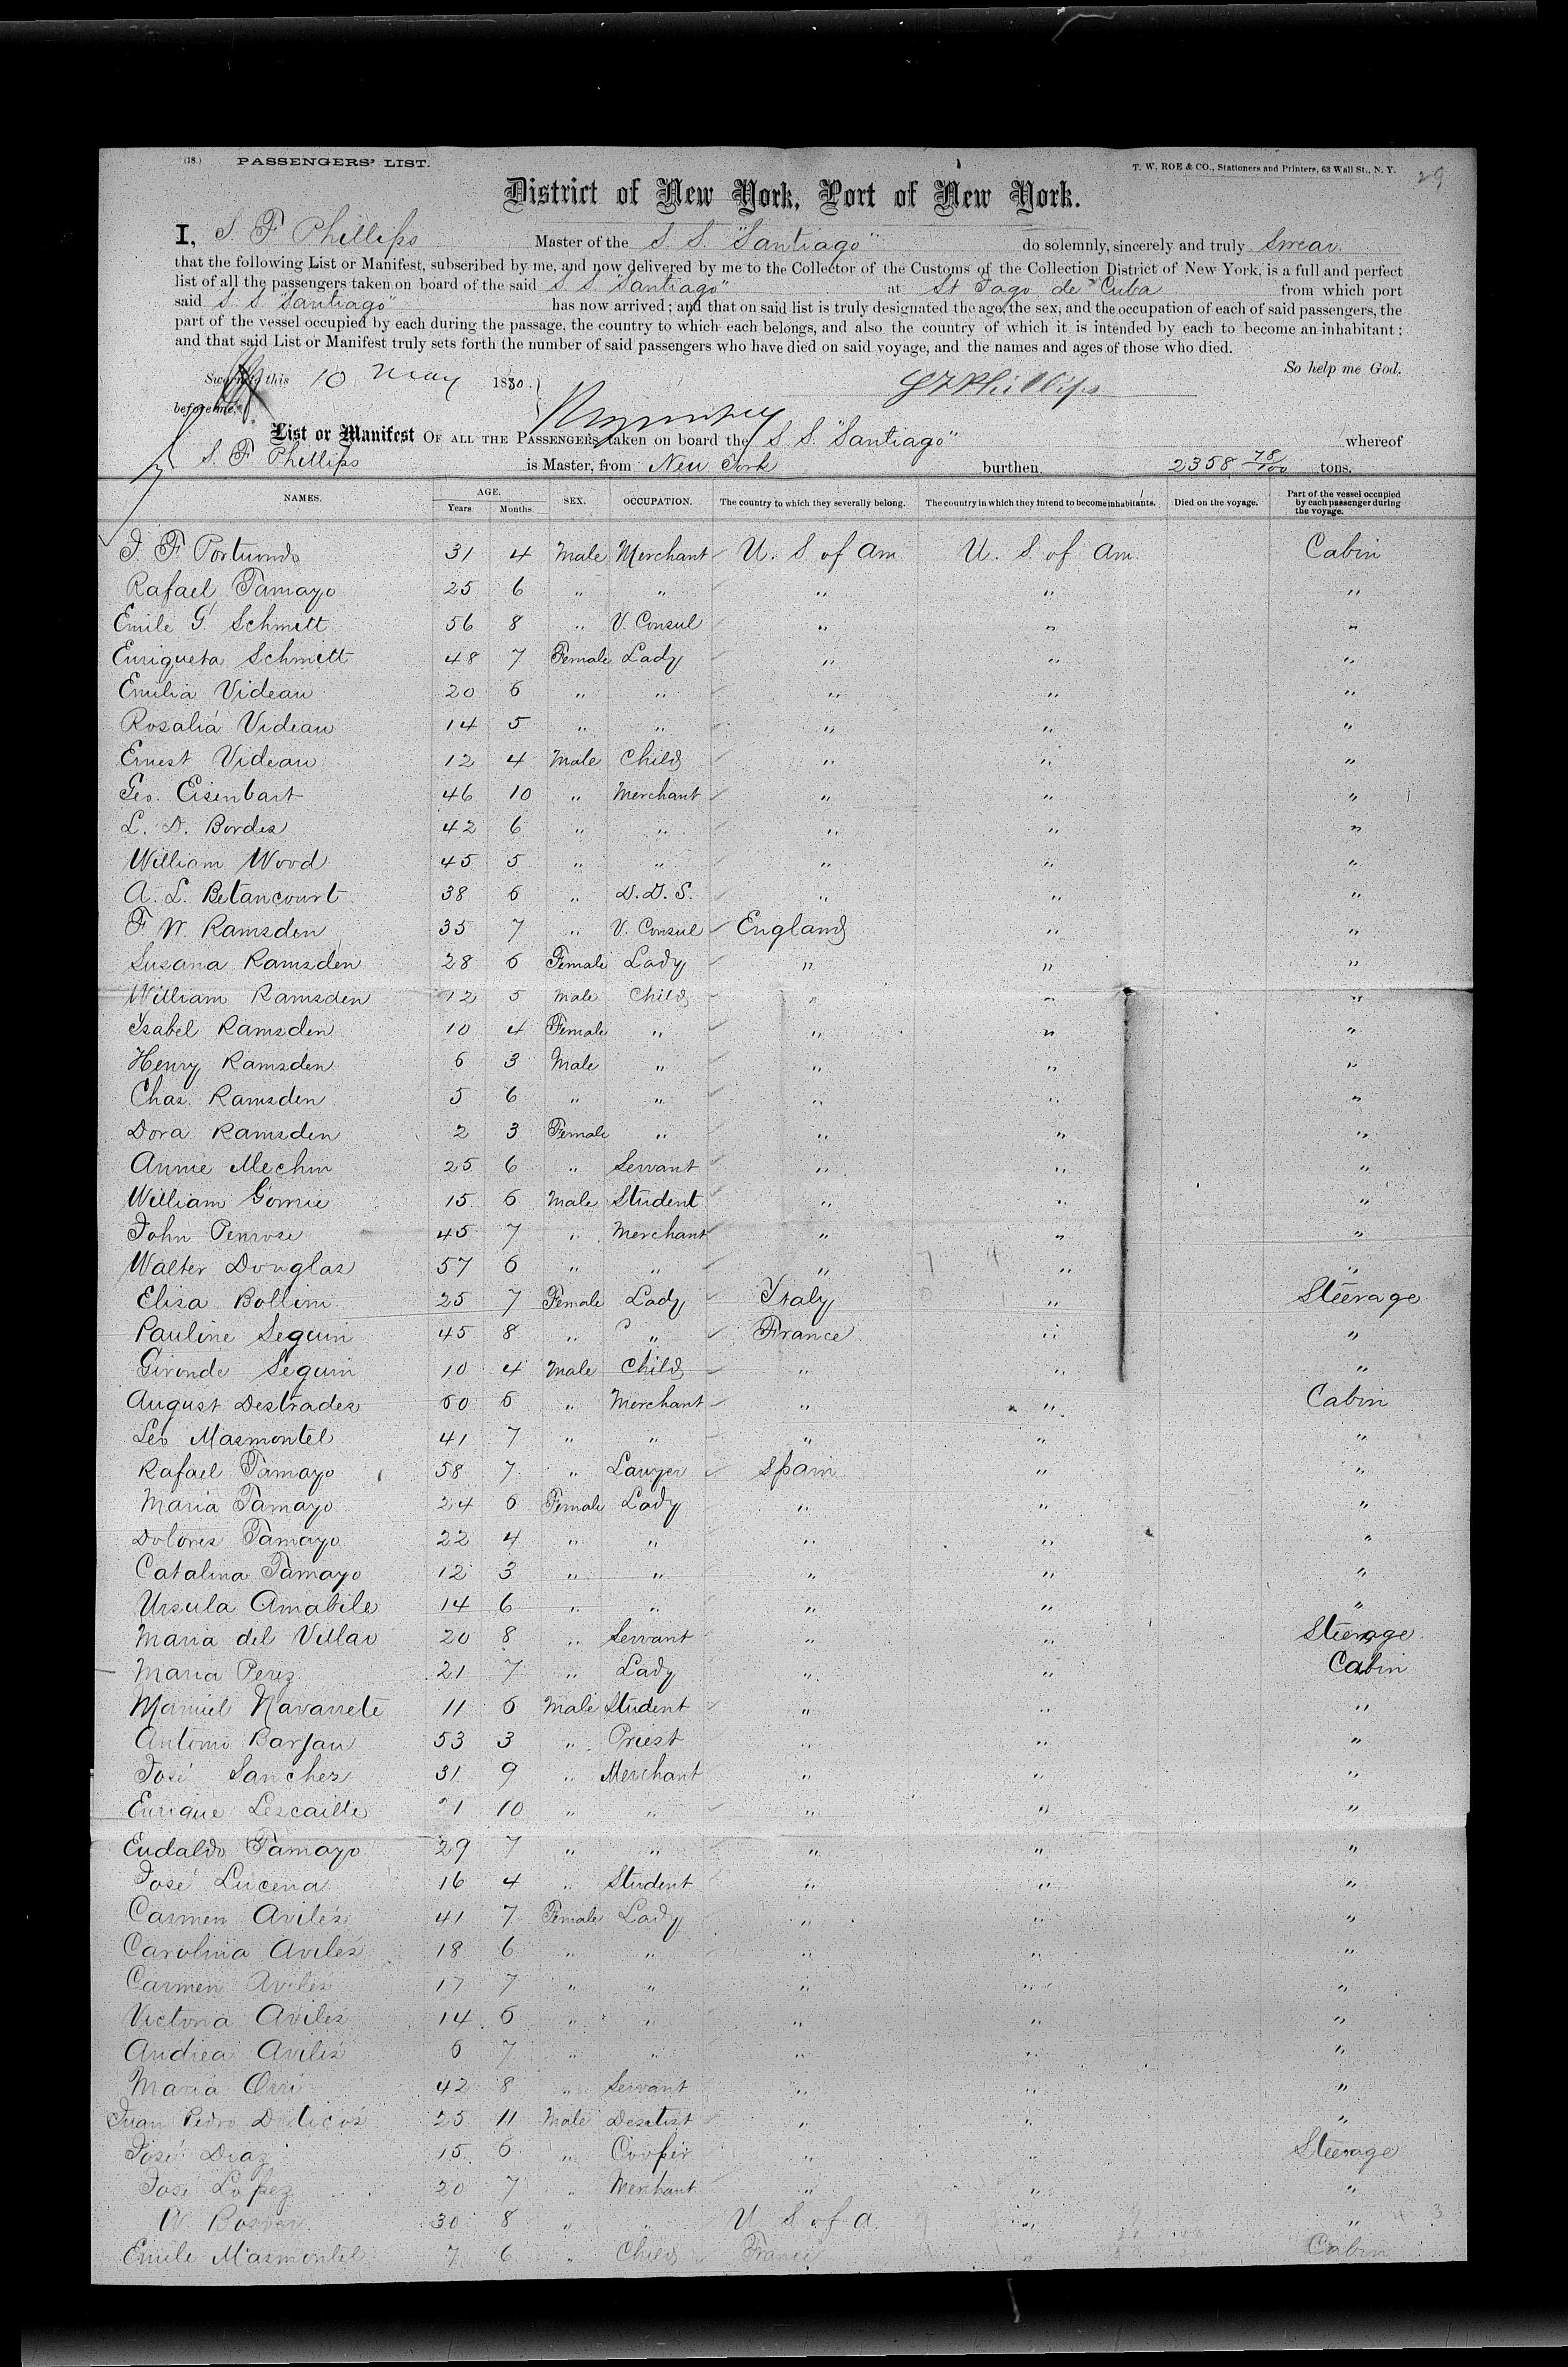 (18.) PASSENGERS' LIST.
T. W. ROE & CO., Stationers and Printers, 63 Wall St., N. Y.
29
District of New York, Port of New York.
I, S. F Phillips Master of the S. S. "Santiago" do solemnly, sincerely and truly Swear
that the following List or Manifest, subscribed by me, and now delivered by me to the Collector of the Customs of the Collection District of New York, is a full and perfect
list of all the passengers taken on board of the said S. S. "Santiago" at St Jago de Cuba from which port
said S S "Santiago" has now arrived; and that on said list is truly designated the age, the sex, and the occupation of each of said passengers, the
part of the vessel occupied by each during the passage, the country to which each belongs, and also the country of which it is intended by each to become an inhabitant;
and that said List or Manifest truly sets forth the number of said passengers who have died on said voyage, and the names and ages of those who died.
So help me God.
Sworn to this 10 May 1880. S F Phillips
before me,
List or Manifest OF ALL THE PASSENGERS taken on board the S S. "Santiago" whereof
S. F Phillips is Master, from New York burthen 2358 78/100 tons.
NAMES. AGE. Years. Months. SEX. OCCUPATION. The country to which they severally belong. The country in which they intend to become inhabitants. Died on the voyage. Part of the vessel occupied by each passenger during the voyage.
J. F Portuondo 31 4 Male Merchant U. S of Am U. S. of Am Cabin
Rafael Tamayo 25 6 " " " " "
Emile G. Schmitt 56 8 " V. Consul " " "
Enriqueta Schmitt 48 7 Female Lady " " "
Emilia Videau 20 6 " " " " "
Rosalia Videau 14 5 " " " " "
Ernest Videau 12 4 Male Child " " "
Geo. Eisenbart 46 10 " Merchant " " "
L. D. Bordes 42 6 " " " " "
William Wood 45 5 " " " " "
A. L. Betancourt 38 6 " D. D. S. " " "
F W. Ramsden 35 7 " V. Consul England " "
Susana Ramsden 28 6 Female Lady " " "
William Ramsden 12 5 Male Child " " "
Ysabel Ramsden 10 4 Female " " " "
Henry Ramsden 6 3 Male " " " "
Chas. Ramsden 5 6 " " " " "
Dora Ramsden 2 3 Female " " " "
Annie Mechin 25 6 " Servant " " "
William Gomie 15 6 Male Student " " "
John Penrose 45 7 " Merchant " " "
Walter Douglas 57 6 " " " " "
Elisa Bollini 25 7 Female Lady Italy " Steerage
Pauline Seguin 45 8 " " France " "
Gironde Seguin 10 4 Male Child " " "
August Destrades 60 6 " Merchant " " Cabin
Leo Masmontel 41 7 " " " " "
Rafael Tamayo 58 7 " Lawyer Spain " "
Maria Tamayo 24 6 Female Lady " " "
Dolores Tamayo 22 4 " " " " "
Catalina Tamayo 12 3 " " " " "
Ursula Amabile 14 6 " " " " "
Maria del Villar 20 8 " Servant " " Steerage
Maria Perez 21 7 " Lady " " Cabin
Manuel Navarrete 11 6 Male Student " " "
Antonio Barjau 53 3 " Priest " " "
José Sanchez 31 9 " Merchant " " "
Enrique Lescaille 21 10 " " " " "
Eudaldo Tamayo 29 7 " " " " "
José Lucena 16 4 " Student " " "
Carmen Aviles 41 7 Female Lady " " "
Carolina Aviles 18 6 " " " " "
Carmen Aviles 17 7 " " " " "
Victoria Aviles 14 6 " " " " "
Andrea Aviles 6 7 " " " " "
Maria Orri 42 8 " Servant " " "
Juan Pedro 25 11 Male " " "
José Diaz 15 6 " Cooper " " Steerage
José Lopez 20 7 " Merchant " " "
W. 30 8 " " U S of A. " "
Emile Masmontel 7 6 " Child France " Cabin